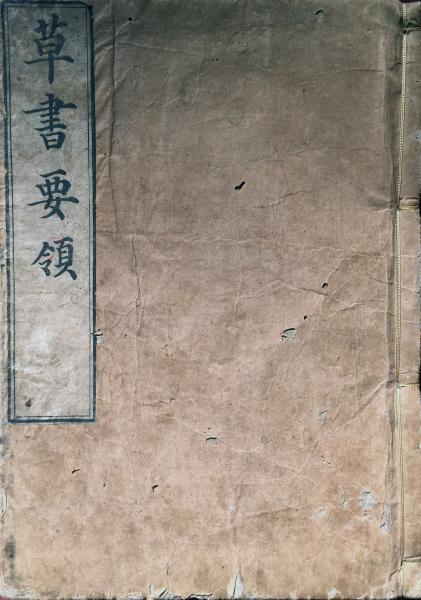 草書要領